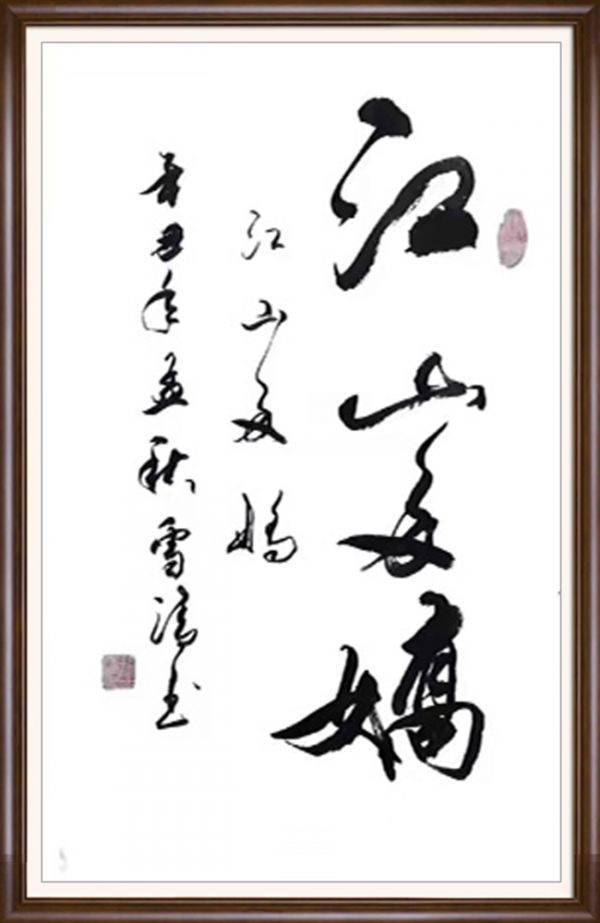 江山多嬌
江山多嬌
辛丑年孟秋雪书